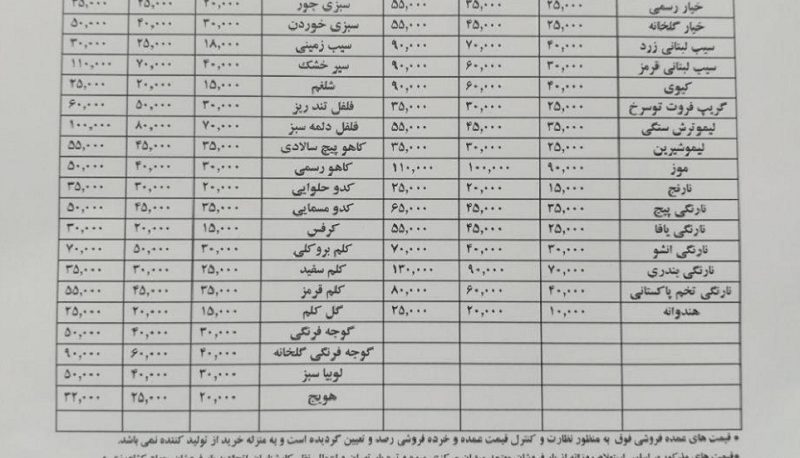 خیار رسمی ۲۵,۰۰۰ ۳۵,۰۰۰ ۵۵,۰۰۰ سبزی جور ۲۰,۰۰۰ ۲۵,۰۰۰ ۳۵,۰۰۰
خیار گلخانه ۲۵,۰۰۰ ۴۵,۰۰۰ ۵۵,۰۰۰ سبزی خوردن ۳۰,۰۰۰ ۴۰,۰۰۰ ۵۰,۰۰۰
سیب لبنانی زرد ۴۰,۰۰۰ ۷۰,۰۰۰ ۹۰,۰۰۰ سیب زمینی ۱۸,۰۰۰ ۲۵,۰۰۰ ۳۰,۰۰۰
سیب لبنانی قرمز ۳۰,۰۰۰ ۶۰,۰۰۰ ۹۰,۰۰۰ سیر خشک ۴۰,۰۰۰ ۷۰,۰۰۰ ۱۱۰,۰۰۰
کیوی ۴۰,۰۰۰ ۶۰,۰۰۰ ۹۰,۰۰۰ شلغم ۱۵,۰۰۰ ۲۰,۰۰۰ ۲۵,۰۰۰
گریپ فروت توسرخ ۲۵,۰۰۰ ۳۰,۰۰۰ ۳۵,۰۰۰ فلفل تند ریز ۳۰,۰۰۰ ۵۰,۰۰۰ ۶۰,۰۰۰
لیموترش سنگی ۳۵,۰۰۰ ۴۵,۰۰۰ ۵۵,۰۰۰ فلفل دلمه سبز ۷۰,۰۰۰ ۸۰,۰۰۰ ۱۰۰,۰۰۰
لیموشیرین ۲۵,۰۰۰ ۳۰,۰۰۰ ۳۵,۰۰۰ کاهو پیچ سالادی ۳۵,۰۰۰ ۴۵,۰۰۰ ۵۵,۰۰۰
موز ۹۰,۰۰۰ ۱۰۰,۰۰۰ ۱۱۰,۰۰۰ کاهو رسمی ۳۰,۰۰۰ ۴۰,۰۰۰ ۵۰,۰۰۰
نارنج ۱۵,۰۰۰ ۲۰,۰۰۰ ۲۵,۰۰۰ کدو حلوایی ۲۰,۰۰۰ ۳۰,۰۰۰ ۳۵,۰۰۰
نارنگی پیج ۳۵,۰۰۰ ۴۵,۰۰۰ ۶۵,۰۰۰ کدو مسمایی ۳۵,۰۰۰ ۴۵,۰۰۰ ۵۰,۰۰۰
نارنگی یافا ۲۵,۰۰۰ ۴۵,۰۰۰ ۵۵,۰۰۰ کرفس ۱۵,۰۰۰ ۲۰,۰۰۰ ۳۰,۰۰۰
نارنگی انشو ۳۰,۰۰۰ ۴۰,۰۰۰ ۷۰,۰۰۰ کلم بروکلی ۳۰,۰۰۰ ۵۰,۰۰۰ ۷۰,۰۰۰
نارنگی بندری ۷۰,۰۰۰ ۹۰,۰۰۰ ۱۳۰,۰۰۰ کلم سفید ۲۵,۰۰۰ ۳۰,۰۰۰ ۳۵,۰۰۰
نارنگی تخم پاکستانی ۴۰,۰۰۰ ۶۰,۰۰۰ ۸۰,۰۰۰ کلم قرمز ۳۵,۰۰۰ ۴۵,۰۰۰ ۵۵,۰۰۰
هندوانه ۱۰,۰۰۰ ۲۰,۰۰۰ ۲۵,۰۰۰ گل کلم ۱۵,۰۰۰ ۲۰,۰۰۰ ۲۵,۰۰۰
گوجه فرنگی ۳۰,۰۰۰ ۴۰,۰۰۰ ۵۰,۰۰۰
گوجه فرنگی گلخانه ۴۰,۰۰۰ ۶۰,۰۰۰ ۹۰,۰۰۰
لوبیا سبز ۳۰,۰۰۰ ۴۰,۰۰۰ ۵۰,۰۰۰
هویج ۲۰,۰۰۰ ۲۵,۰۰۰ ۳۲,۰۰۰
* قیمت های عمده فروشی فوق به منظور نظارت و کنترل قیمت عمده و خرده فروشی رصد و تعیین گردیده است و به منزله خرید از تولید کننده نمی باشد.